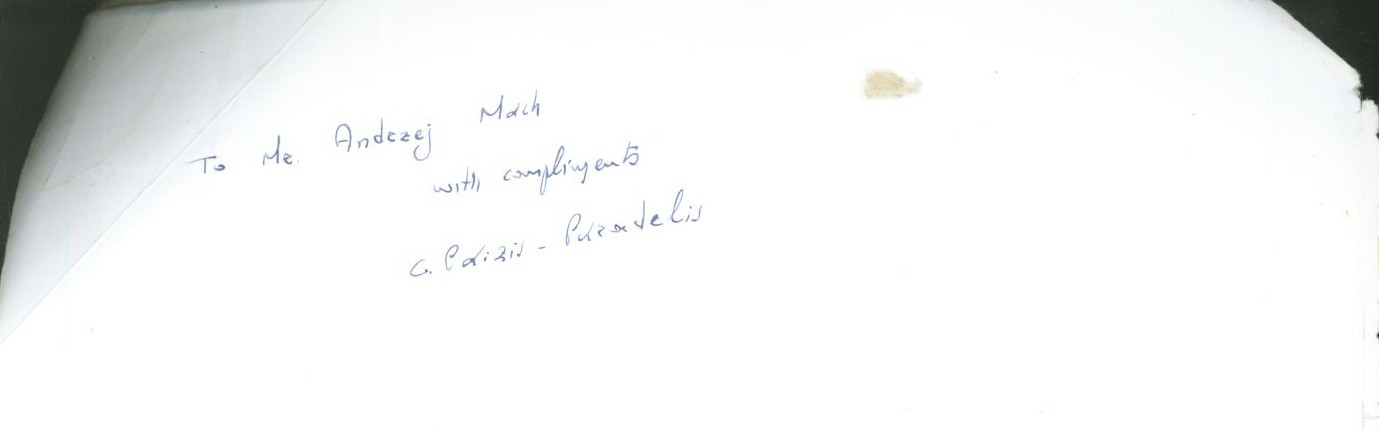 To Mr. Andrzej Mach
with compliments
C. Paizis - Paradelis